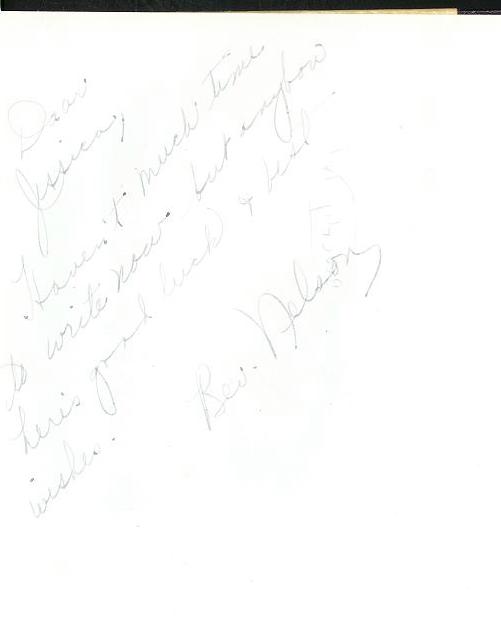 Dear
Jessica,
Haven't much time
to write now. but anyhow
here's good luck & best
wishes.
Bev. Nelson